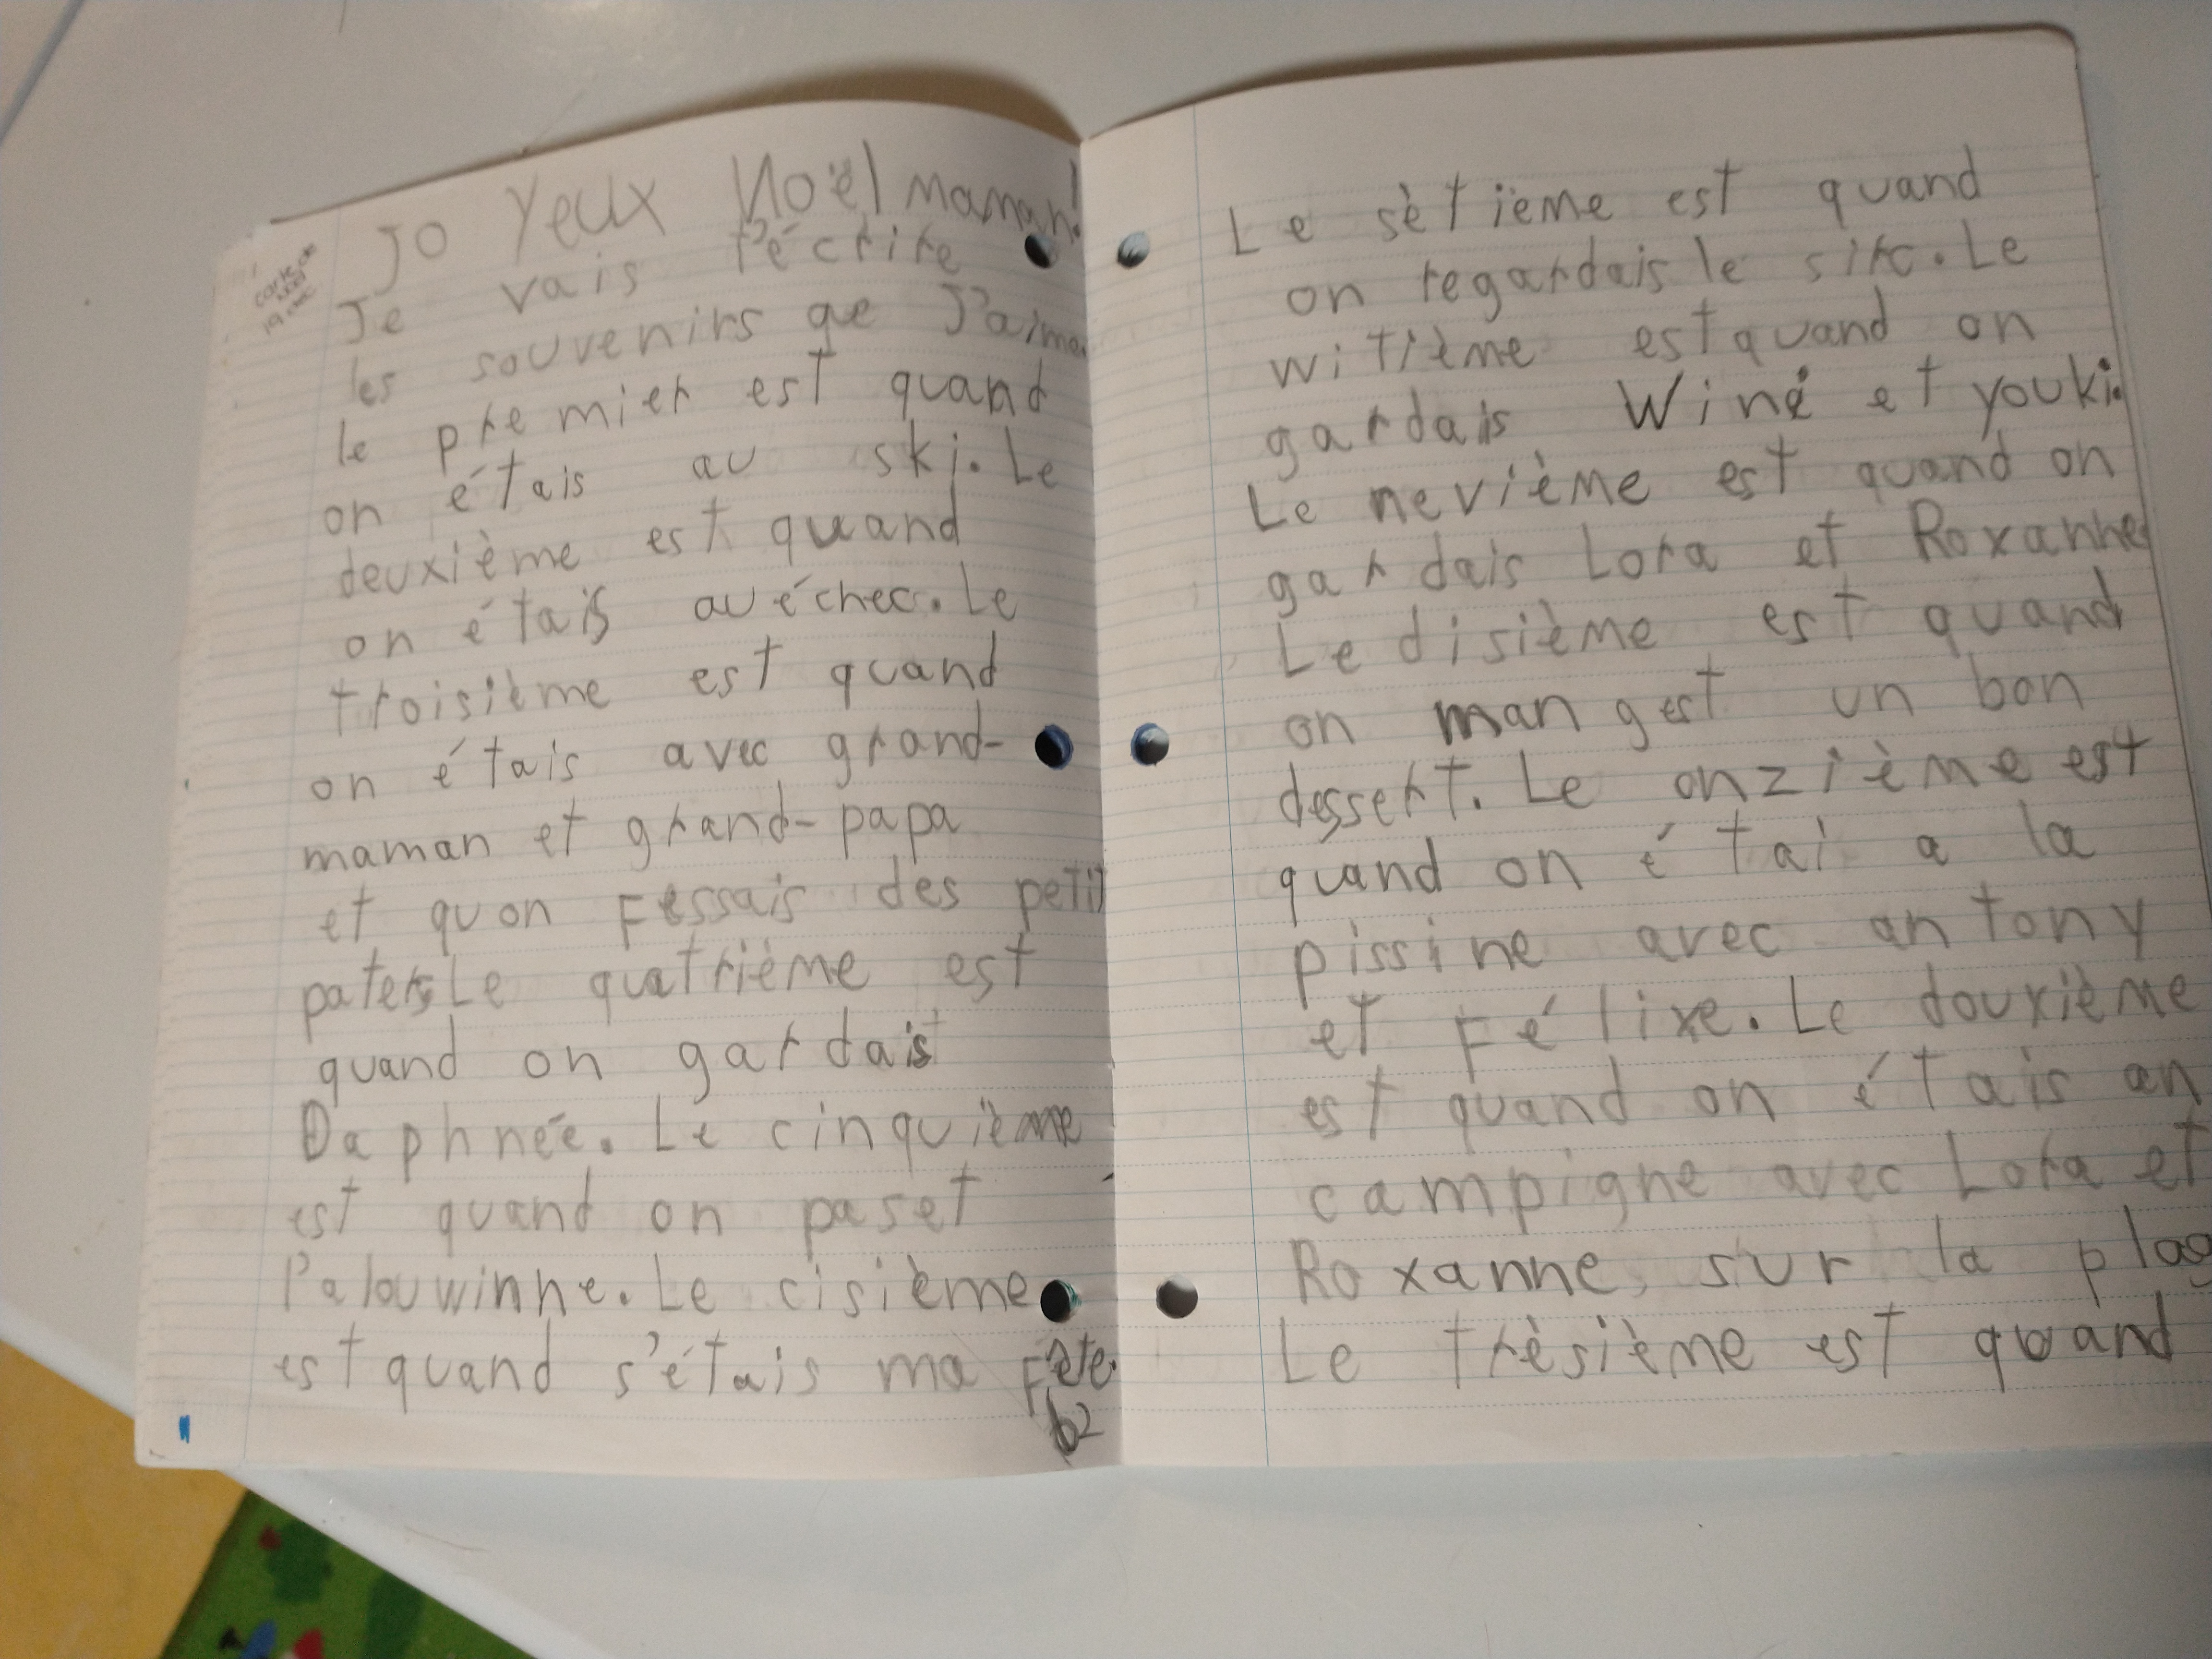 carte de
Noël
19 déc
Jo Yeux Noël maman!
Je vais t'écrire
les souvenirs que J'aime.
le premier est quand
on étais au ski. Le
deuxième est quand
on étais au échec. Le
troisième est quand
on étais avec grand-
maman et grand-papa
et quon Fessais des petit
paters Le quatrième est
quand on gardais
Daphnée. Le cinquième
est quand on paset
l'alouwinne. Le cisième
est quand s'étais ma Fête.
Le sètième est quand
on regardais le sirc. Le
witième est quand on
gardais Winé et youki.
Le nevième est quand on
gardais Lora et Roxanne
Le disième est quand
on mangest un bon
dessert. Le onzième est
quand on étai a la
pissine avec antony
et Félixe. Le douxième
est quand on étais an
campigne avec Lora et
Roxanne, sur la plag
Le trèsième est quand